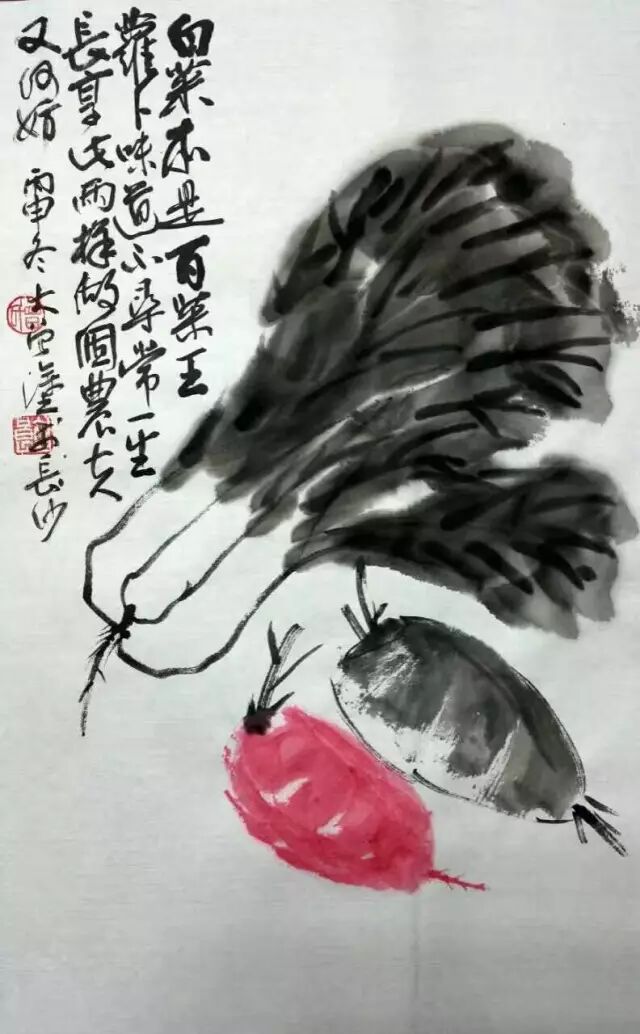 白菜本是百菜王
蘿卜味道不尋常一生
長享此兩樣做個農夫
又何妨 雷冬 大 塗 於長沙